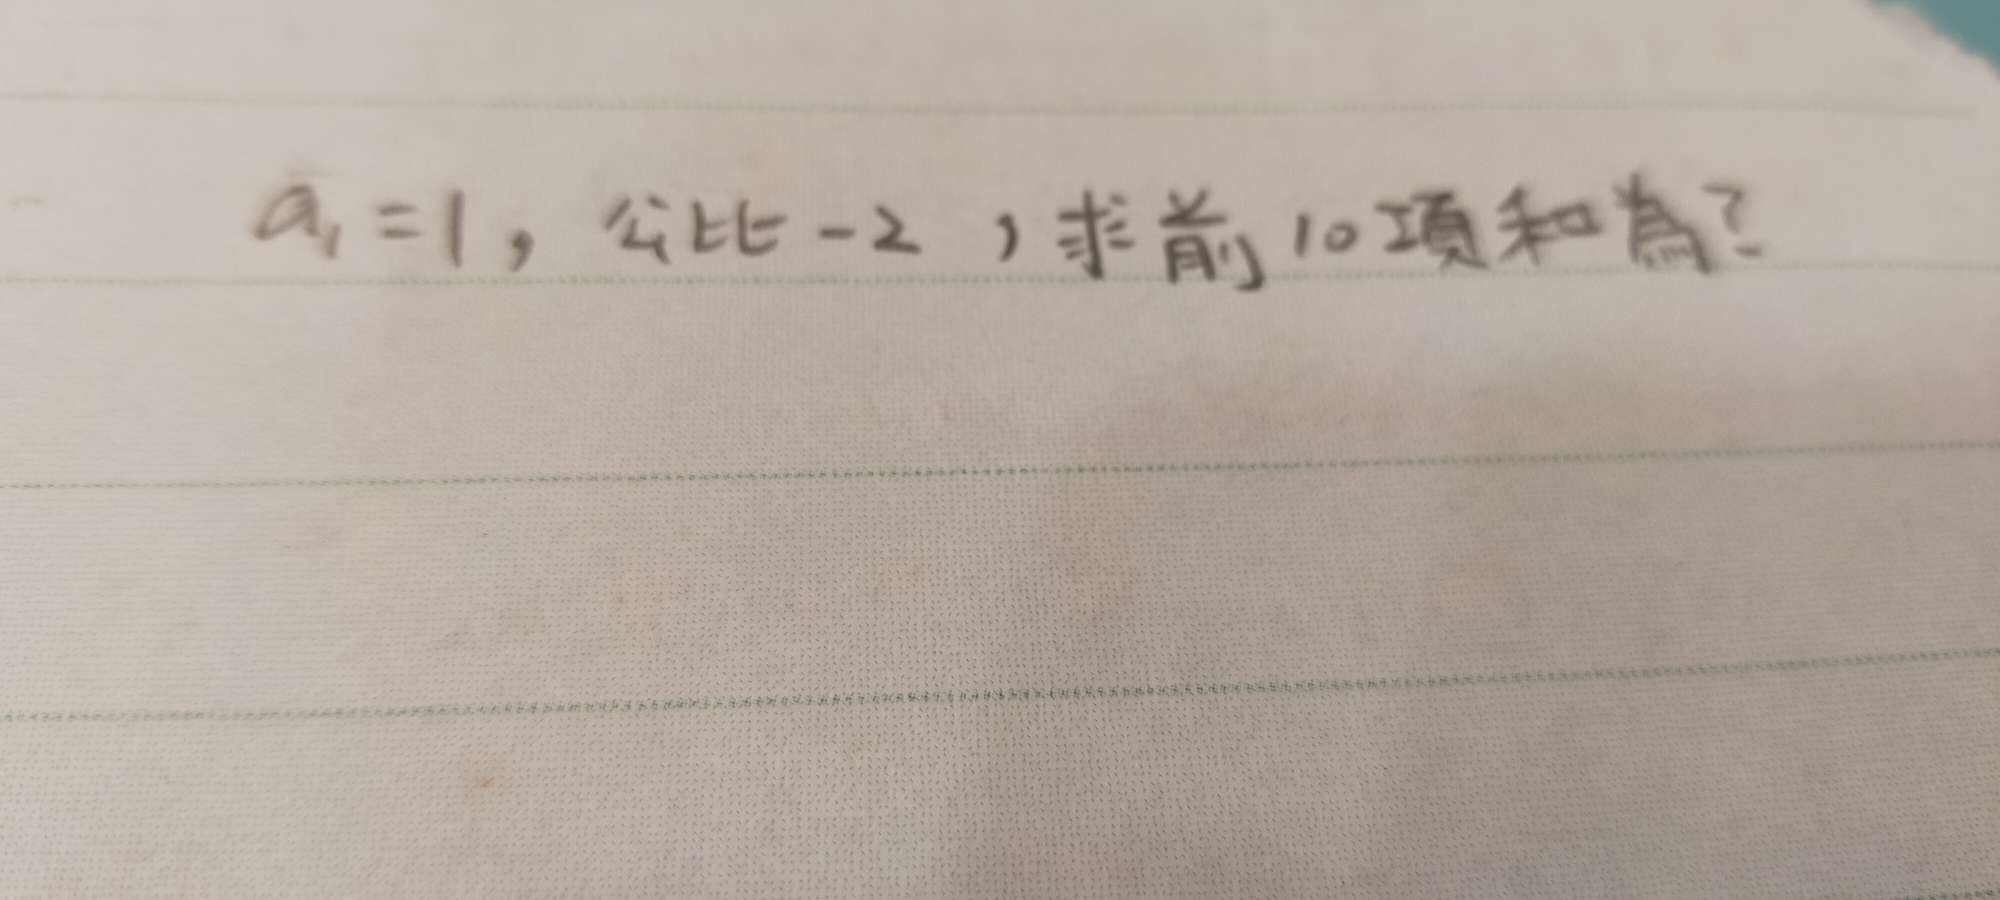 a₁=1, 公比-2,求前10項和為?